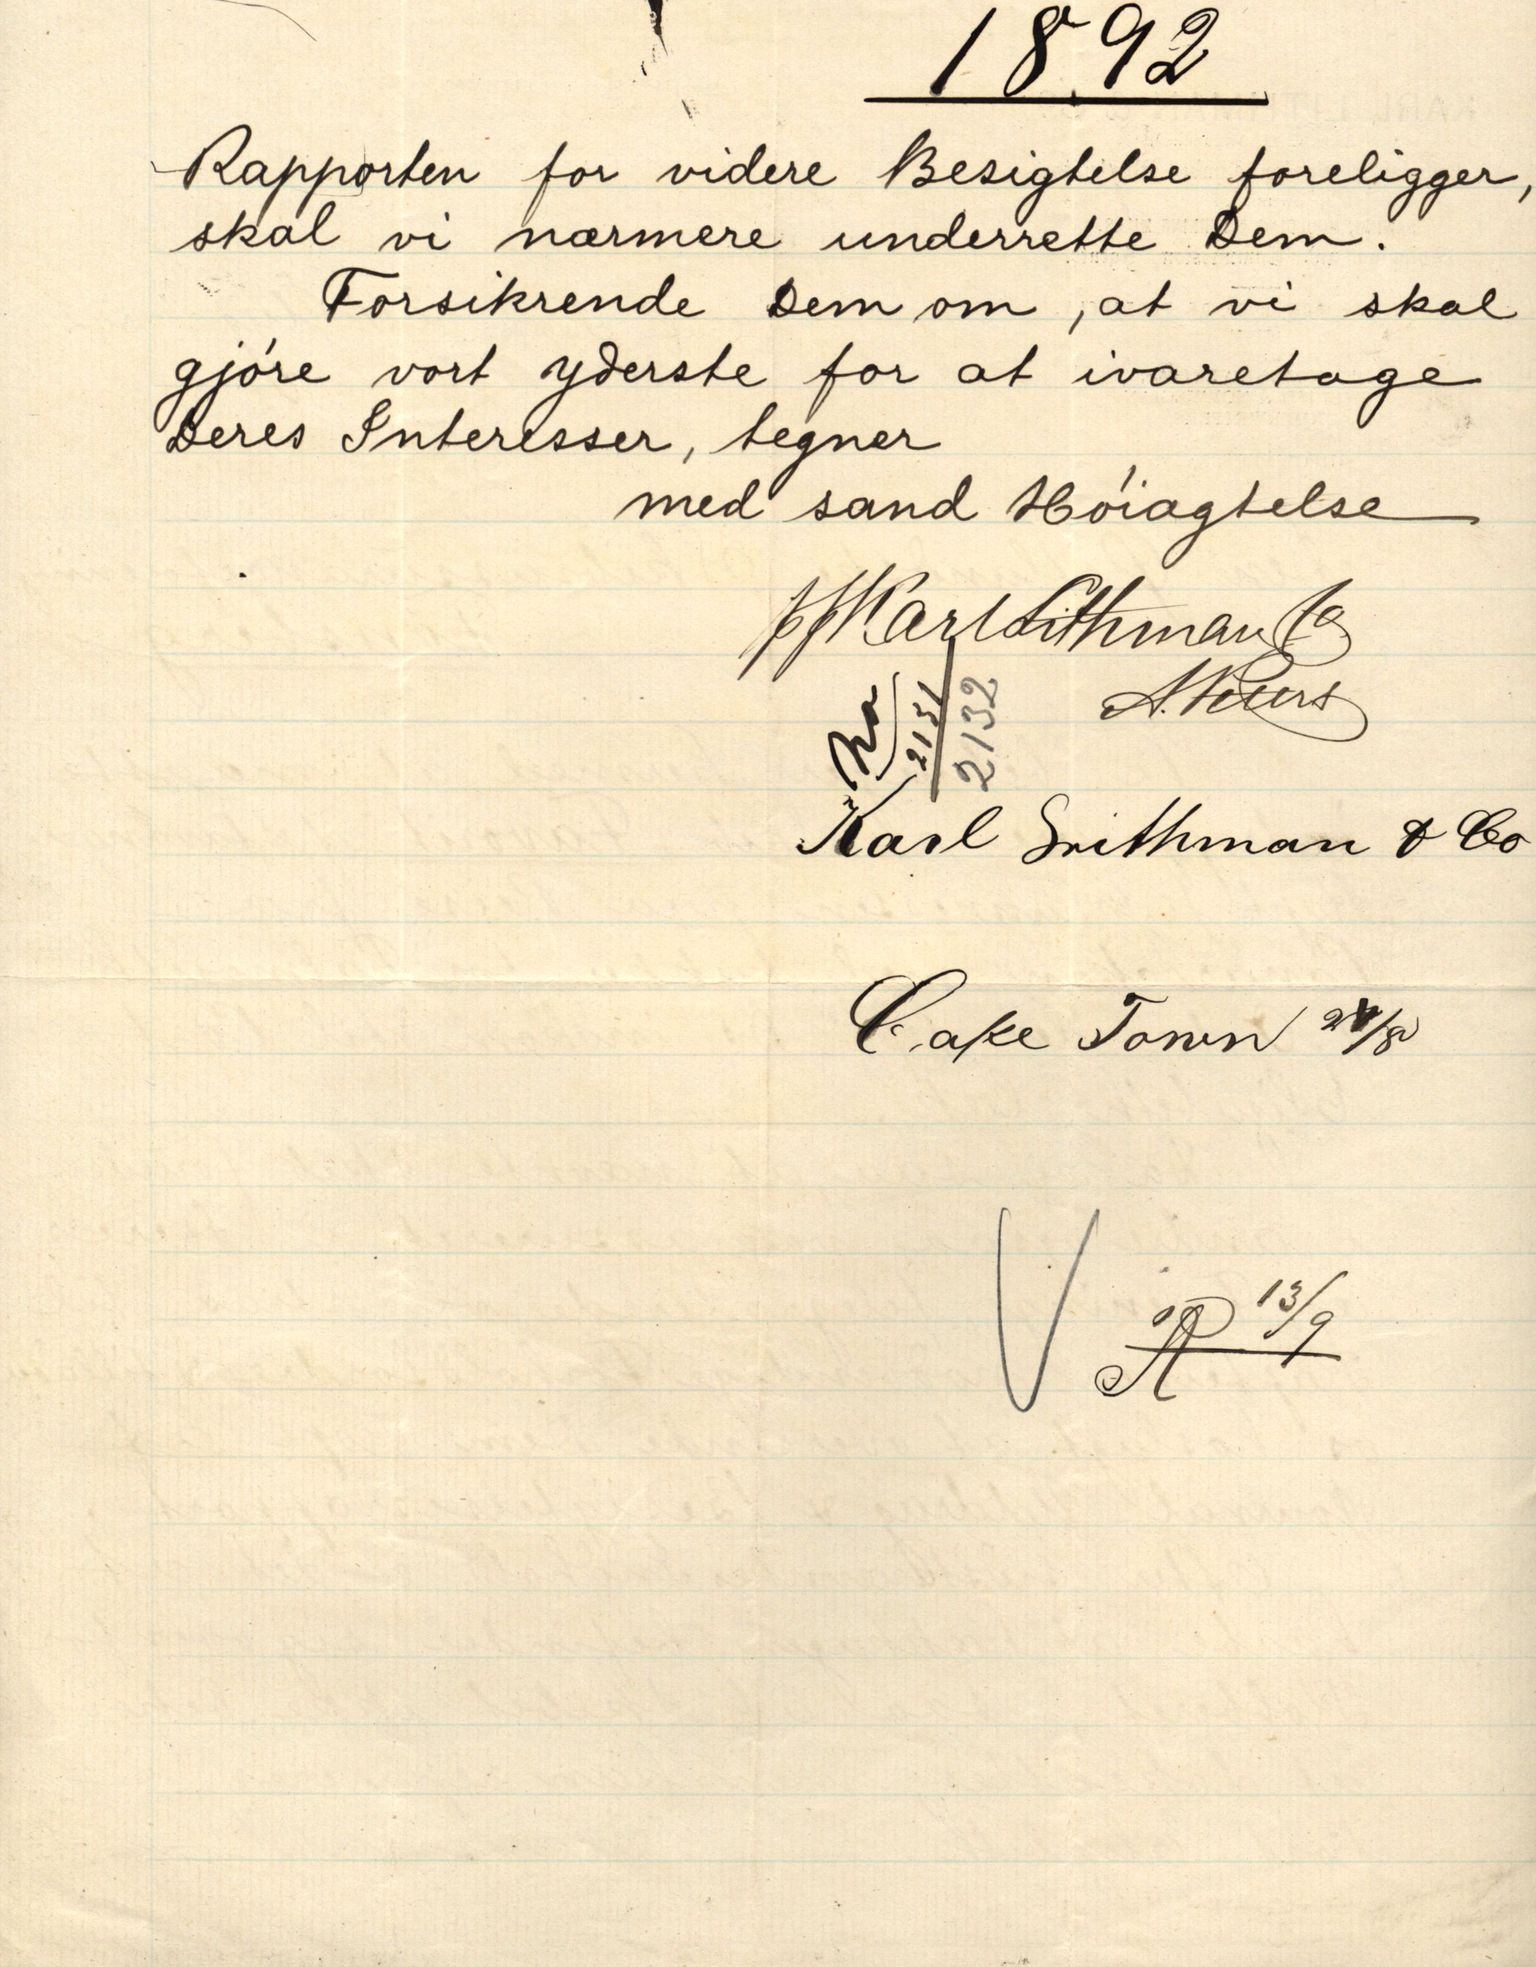 1892
Rapporten for videre Besigtelse foreligger,
skal vi nærmere underrette Dem.
Forsikrende Dem om, at vi skal
gjóre vort yderste for at ivaretage
Deres Interesser, tegner
med sand Hóiagtelse
pp Karl Lithman Co
2131
2132
Karl Lithman & Co
Cape Town
13/9